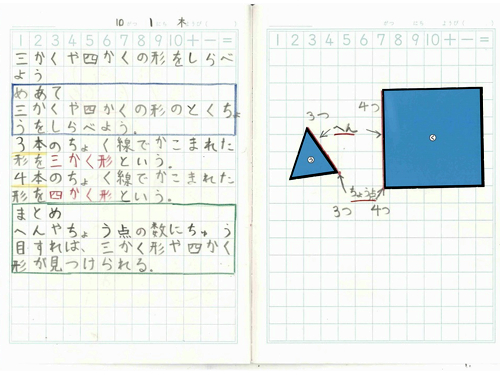 10がつ 1にち 木ようび
1 2 3 4 5 6 7 8 9 10 + − =
三かくや四かくの形をしらべ
よう
めあて
三かくや四かくの形のとくちょ
うをしらべよう。
3本のちょく線でかこまれた
形を三かく形という。
4本のちょく線でかこまれた
形を四かく形という。
まとめ
へんやちょう点の数にちゅう
目すれば、三かく形や四かく
形が見つけられる。
がつ にち ようび
1 2 3 4 5 6 7 8 9 10 + − =
3つ へん 4つ
ちょう点
3つ 4つ